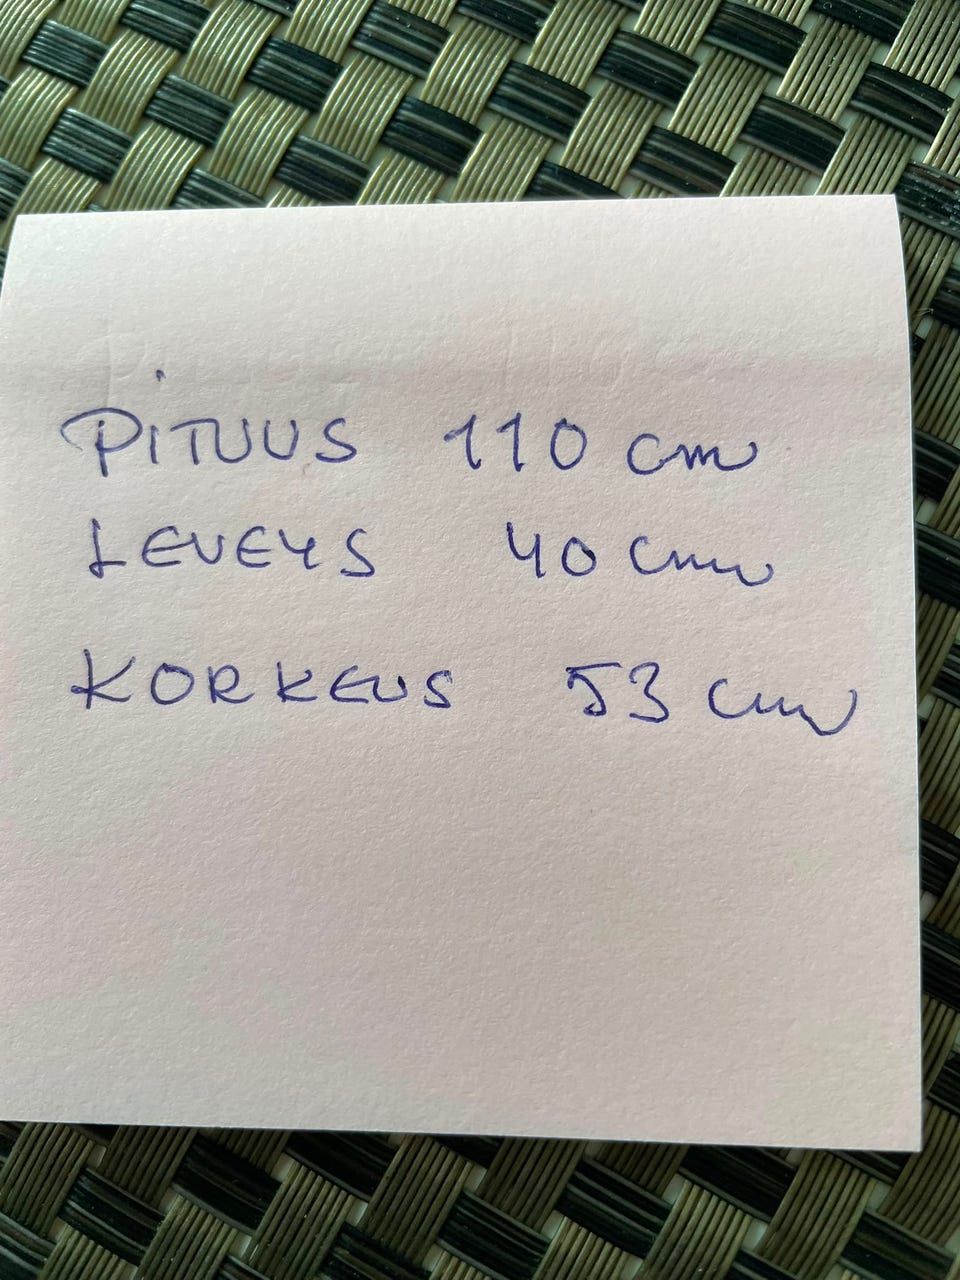 PITUUS 110 cm
LEVEYS 40 cm
KORKEUS 53 cm